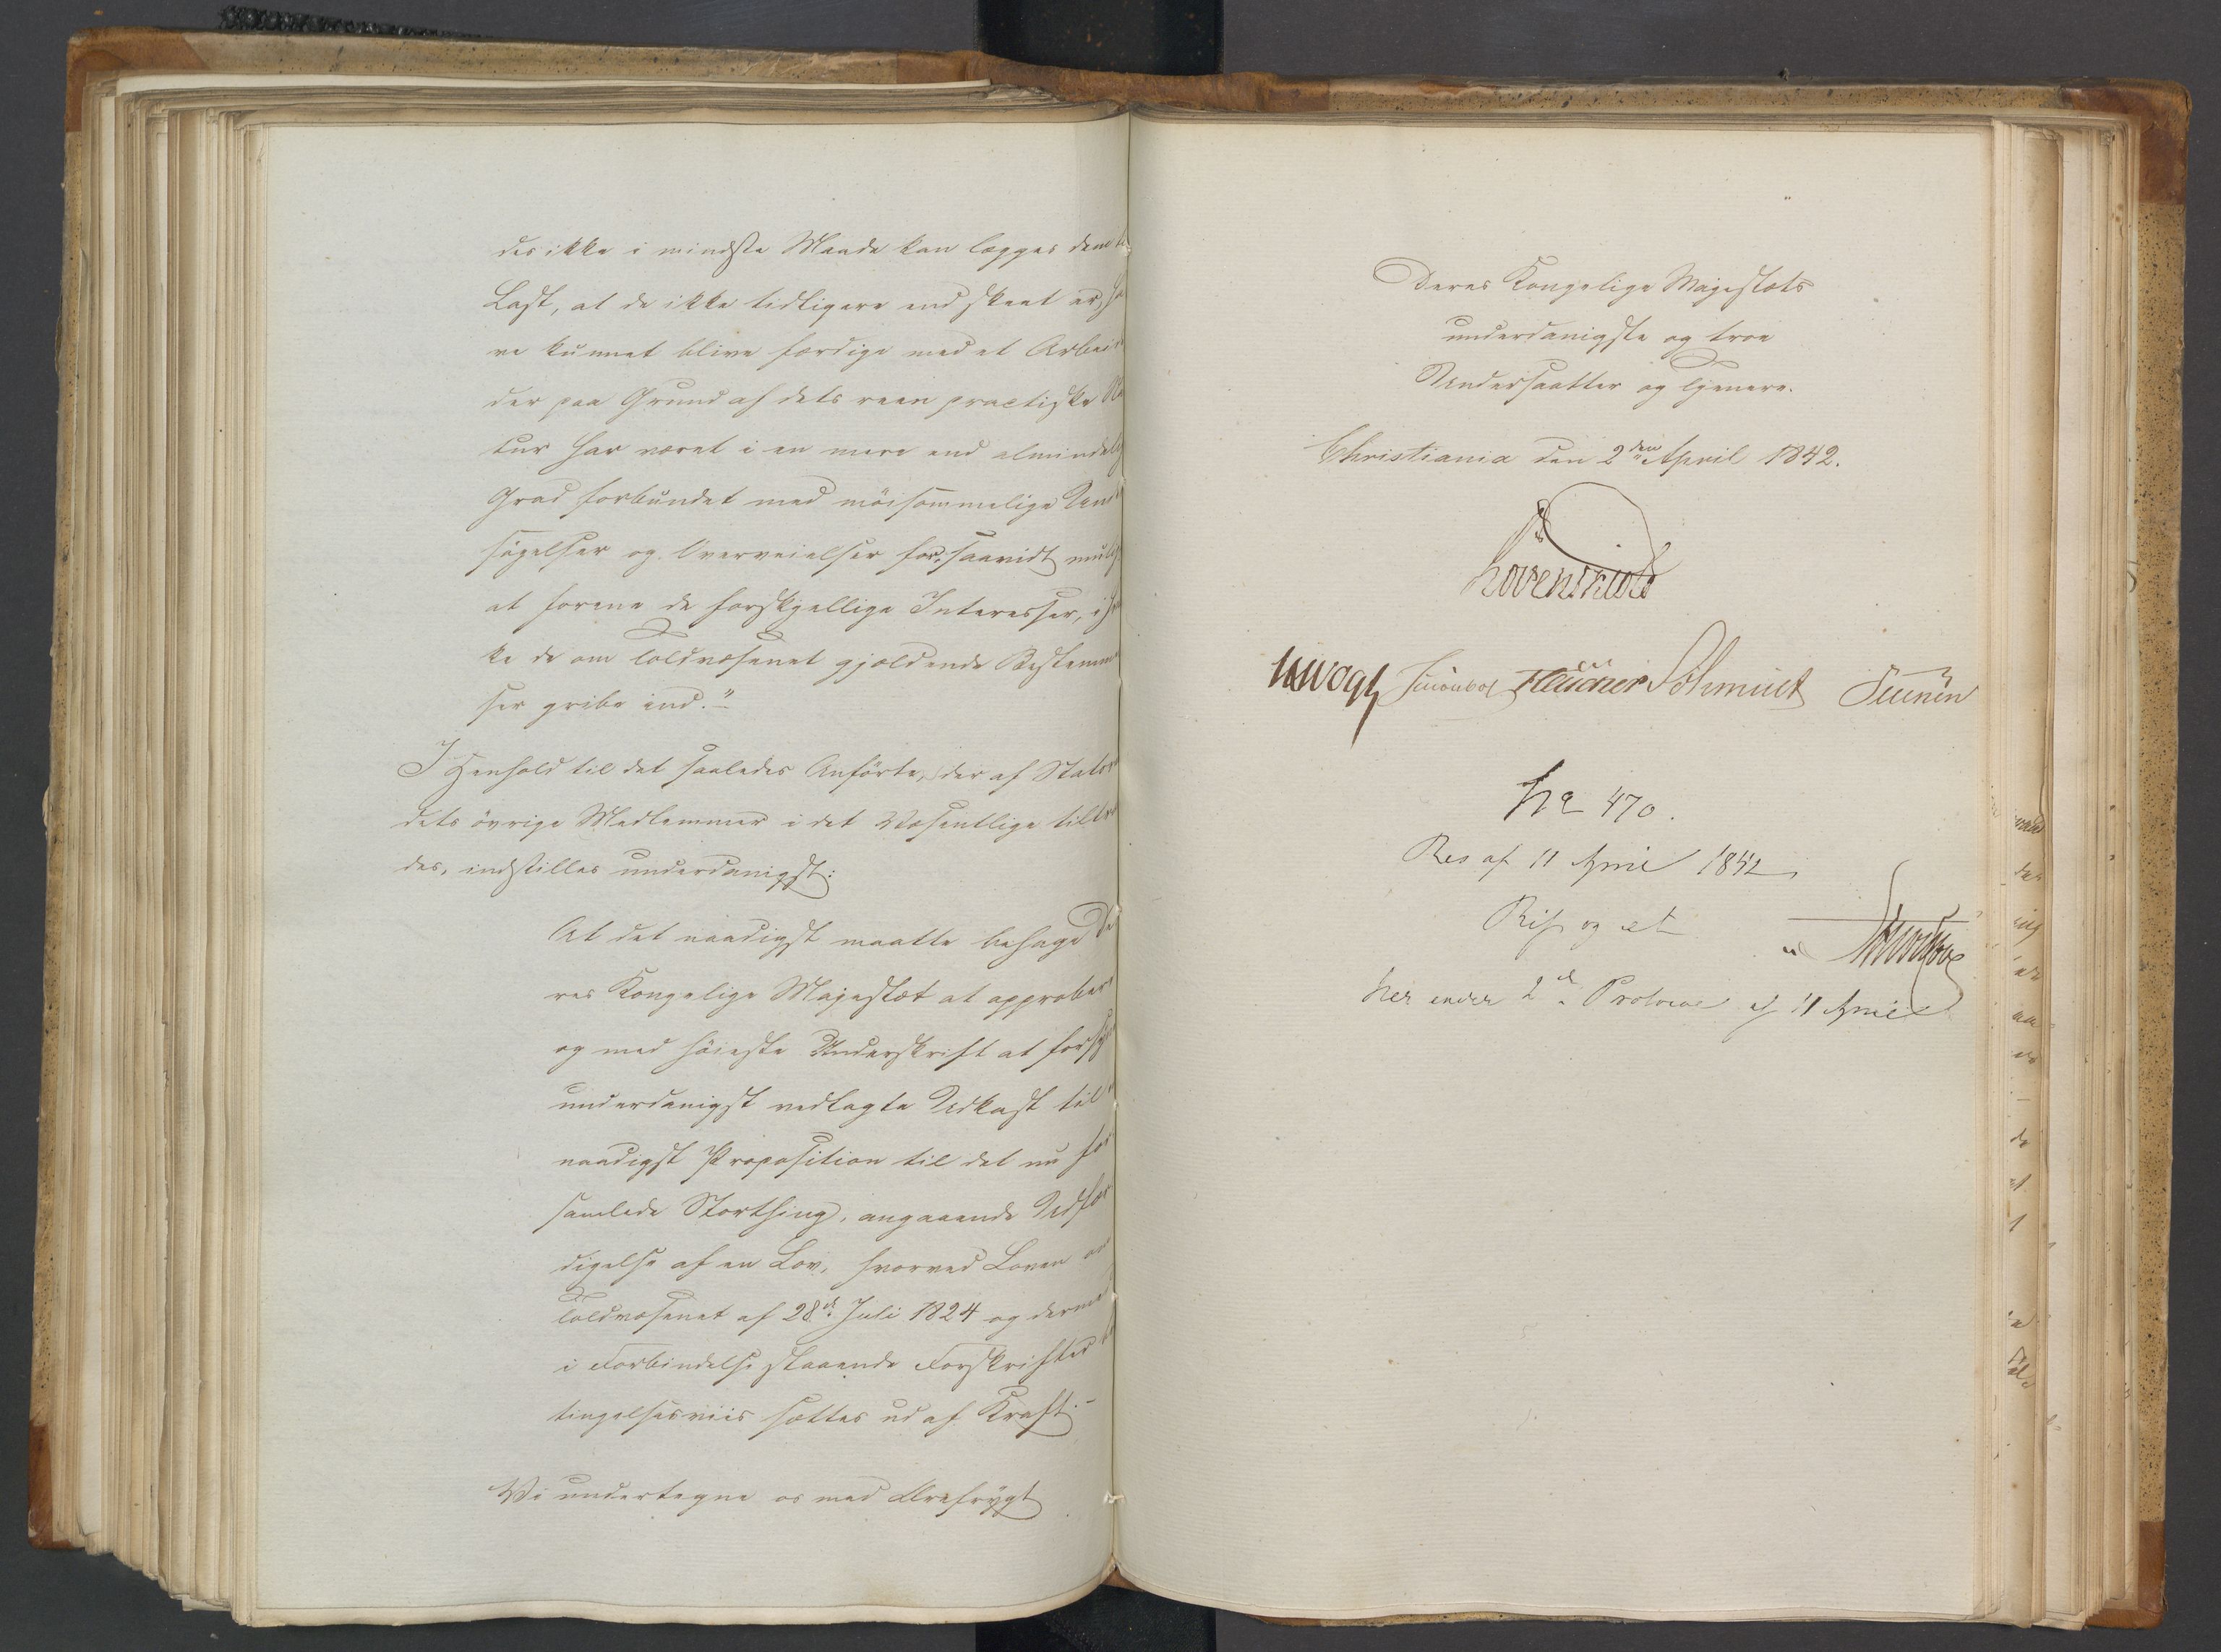 des ikke i mindste Maade kan lægges dem
Last, at de ikke tidligere end skeet er, ha
ve kunnet blive færdige med et Arbei
der paa Grund af dets reen practiske Na
tur har været i en mere end almindelig
Grad forbundet med möisommelige Und
søgelser og Overveielser for, saavidt muligt
at forene de forskjellige Interesser, i
ke de om Toldvæsenet gjældende Bestemm
ser gribe ind."
I Henhold til det saaledes Anförte, der af Stats
dets övrige Medlemmer i det Væsentlige tiltræ
des, indstilles underdanigst:
At det naadigst maatte behage De
res Kongelige Majestæt at approbere
og med höieste Underskrift at forsyne
underdanigst vedlagte Udkast til
naadigst Proposition til det nu for
samlede Storthing, angaaende Udfær
digelse af en Lov, hvorved Loven om
Toldvæsenet af 28de Juli 1824 og dermed
i Forbindelse staaende Forskrifter be
tingelsesviis sættes ud af Kraft.-
Vi undertegne os med Ærefrygt
Deres Kongelige Majestæts
underdanigste og troe
Undersaatter og Tjenere.
Christiania den 2den April 1842.
Løvenskiold
Vogt Fleischer Schmidt
No 470.
Res af 11 April 1842
2d Protocol af 11 April